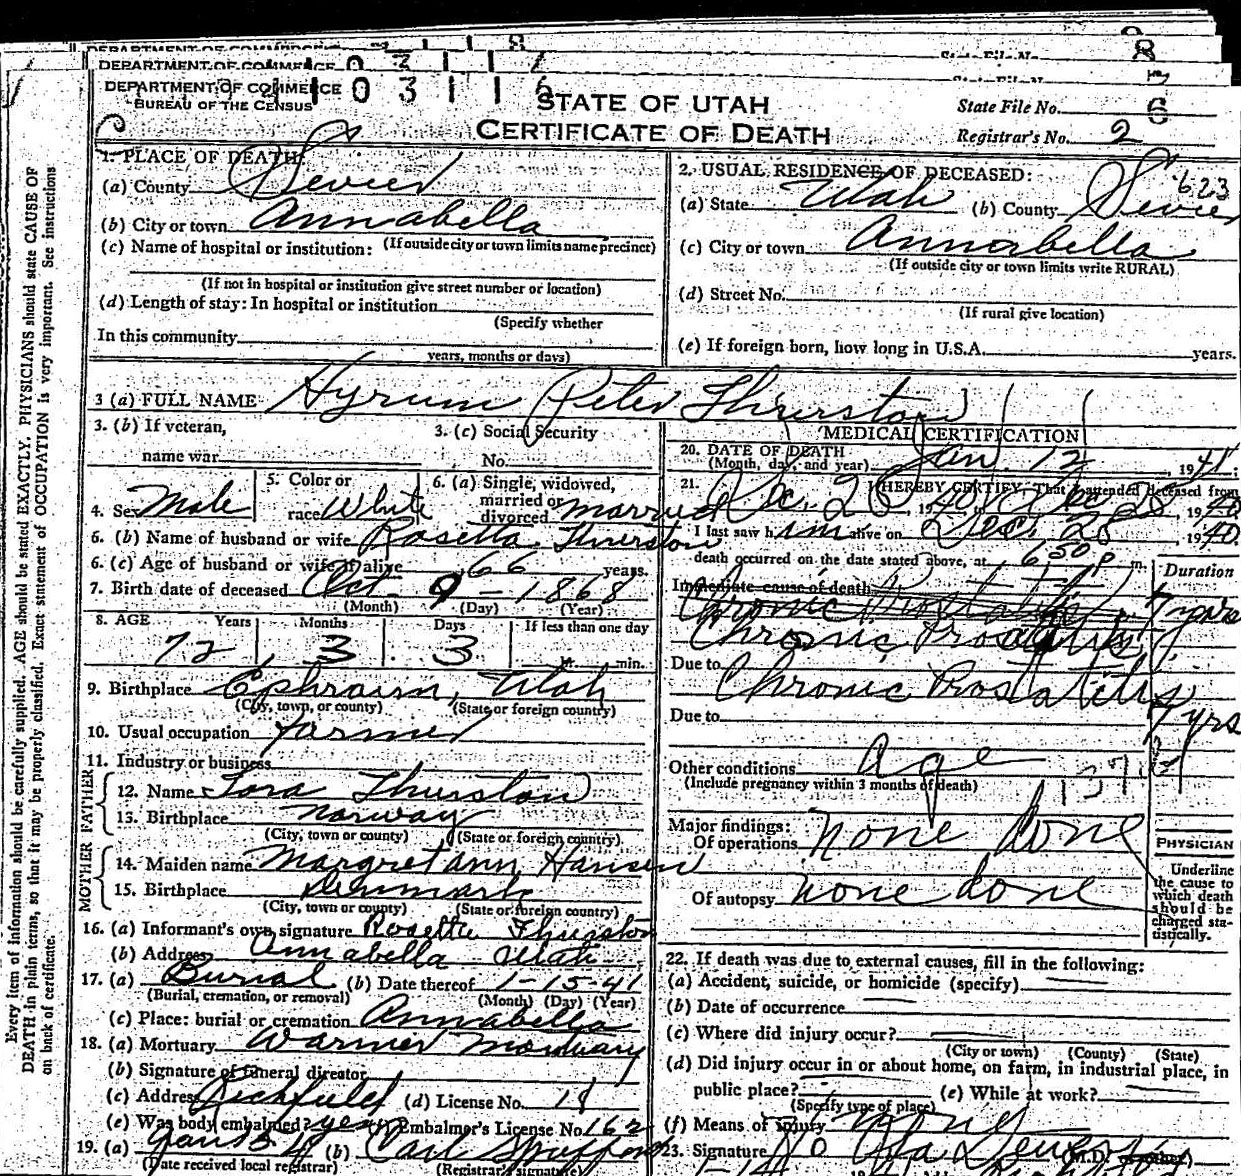 DEPARTMENT OF COMMERCE
DEPARTMENT OF COMMERCE
BUREAU OF THE CENSUS
STATE OF UTAH
CERTIFICATE OF DEATH
State File No. 6
Registrar's No. 2
Every item of information should be carefully supplied. AGE should be stated EXACTLY. PHYSICIANS should state CAUSE OF
DEATH in plain terms, so that it may be properly classified. Exact statement of OCCUPATION is very important. See instructions
on back of certificate.
1. PLACE OF DEATH:
(a) County Sevier
(b) City or town Annabella
(c) Name of hospital or institution: (If outside city or town limits name precinct)
(If not in hospital or institution give street number or location)
(d) Length of stay: In hospital or institution
(Specify whether
In this community
years, months or days)
2. USUAL RESIDENCE OF DECEASED:
623
(a) State Utah (b) County Sevier
(c) City or town Annabella
(If outside city or town limits write RURAL)
(d) Street No.
(If rural give location)
(e) If foreign born, how long in U.S.A. years.
3 (a) FULL NAME Hyrum Peter Thurston
3. (b) If veteran,
name war
3. (c) Social Security
No.
4. Sex Male
5. Color or
race White
6. (a) Single, widowed,
married or
divorced married
6. (b) Name of husband or wife Rosetta Thurston
6. (c) Age of husband or wife if alive 66 years.
7. Birth date of deceased Oct - 9 - 1868
(Month) (Day) (Year)
8. AGE Years Months Days If less than one day
72 3 3 min.
9. Birthplace Ephraim, Utah
(City, town, or county) (State or foreign country)
10. Usual occupation farmer
11. Industry or business
FATHER
12. Name Tora Thurston
13. Birthplace Norway
(City, town or county) (State or foreign country)
MOTHER
14. Maiden name Margret ann Hansen
15. Birthplace Denmark
(City, town or county) (State or foreign country)
16. (a) Informant's own signature Rosetta Thurston
(b) Address Annabella Utah
17. (a) Burial (b) Date thereof 1-15-41
(Burial, cremation, or removal) (Month) (Day) (Year)
(c) Place: burial or cremation Annabella
18. (a) Mortuary Warner Mortuary
(b) Signature of funeral director
(c) Address Richfield (d) License No.
(e) Was body embalmed? yes (f) Embalmer's License No. 162
19. (a) (b) Carl
(Date received local registrar) (Registrar's signature)
MEDICAL CERTIFICATION
20. DATE OF DEATH
(Month, day, and year) Jan. 12, 1941;
21. I HEREBY CERTIFY, That I attended deceased from
Dec. 28, 1940 to Dec 28, 1940
I last saw him alive on Dec. 28, 1940
death occurred on the date stated above, at 6:50 P m.
Duration
Immediate cause of death
Chronic Prostatitis 7 yrs
Chronic Prostatitis
Due to Chronic Prostatitis
7 yrs
Due to
Other conditions Age
(Include pregnancy within 3 months of death)
137
Major findings:
Of operations none done
Of autopsy none done
PHYSICIAN
Underline
the cause to
which death
should be
charged sta-
tistically.
22. If death was due to external causes, fill in the following:
(a) Accident, suicide, or homicide (specify)
(b) Date of occurrence
(c) Where did injury occur?
(City or town) (County) (State)
(d) Did injury occur in or about home, on farm, in industrial place, in
public place? (e) While at work?
(Specify type of place)
(f) Means of injury
23. Signature (M.D. or other)